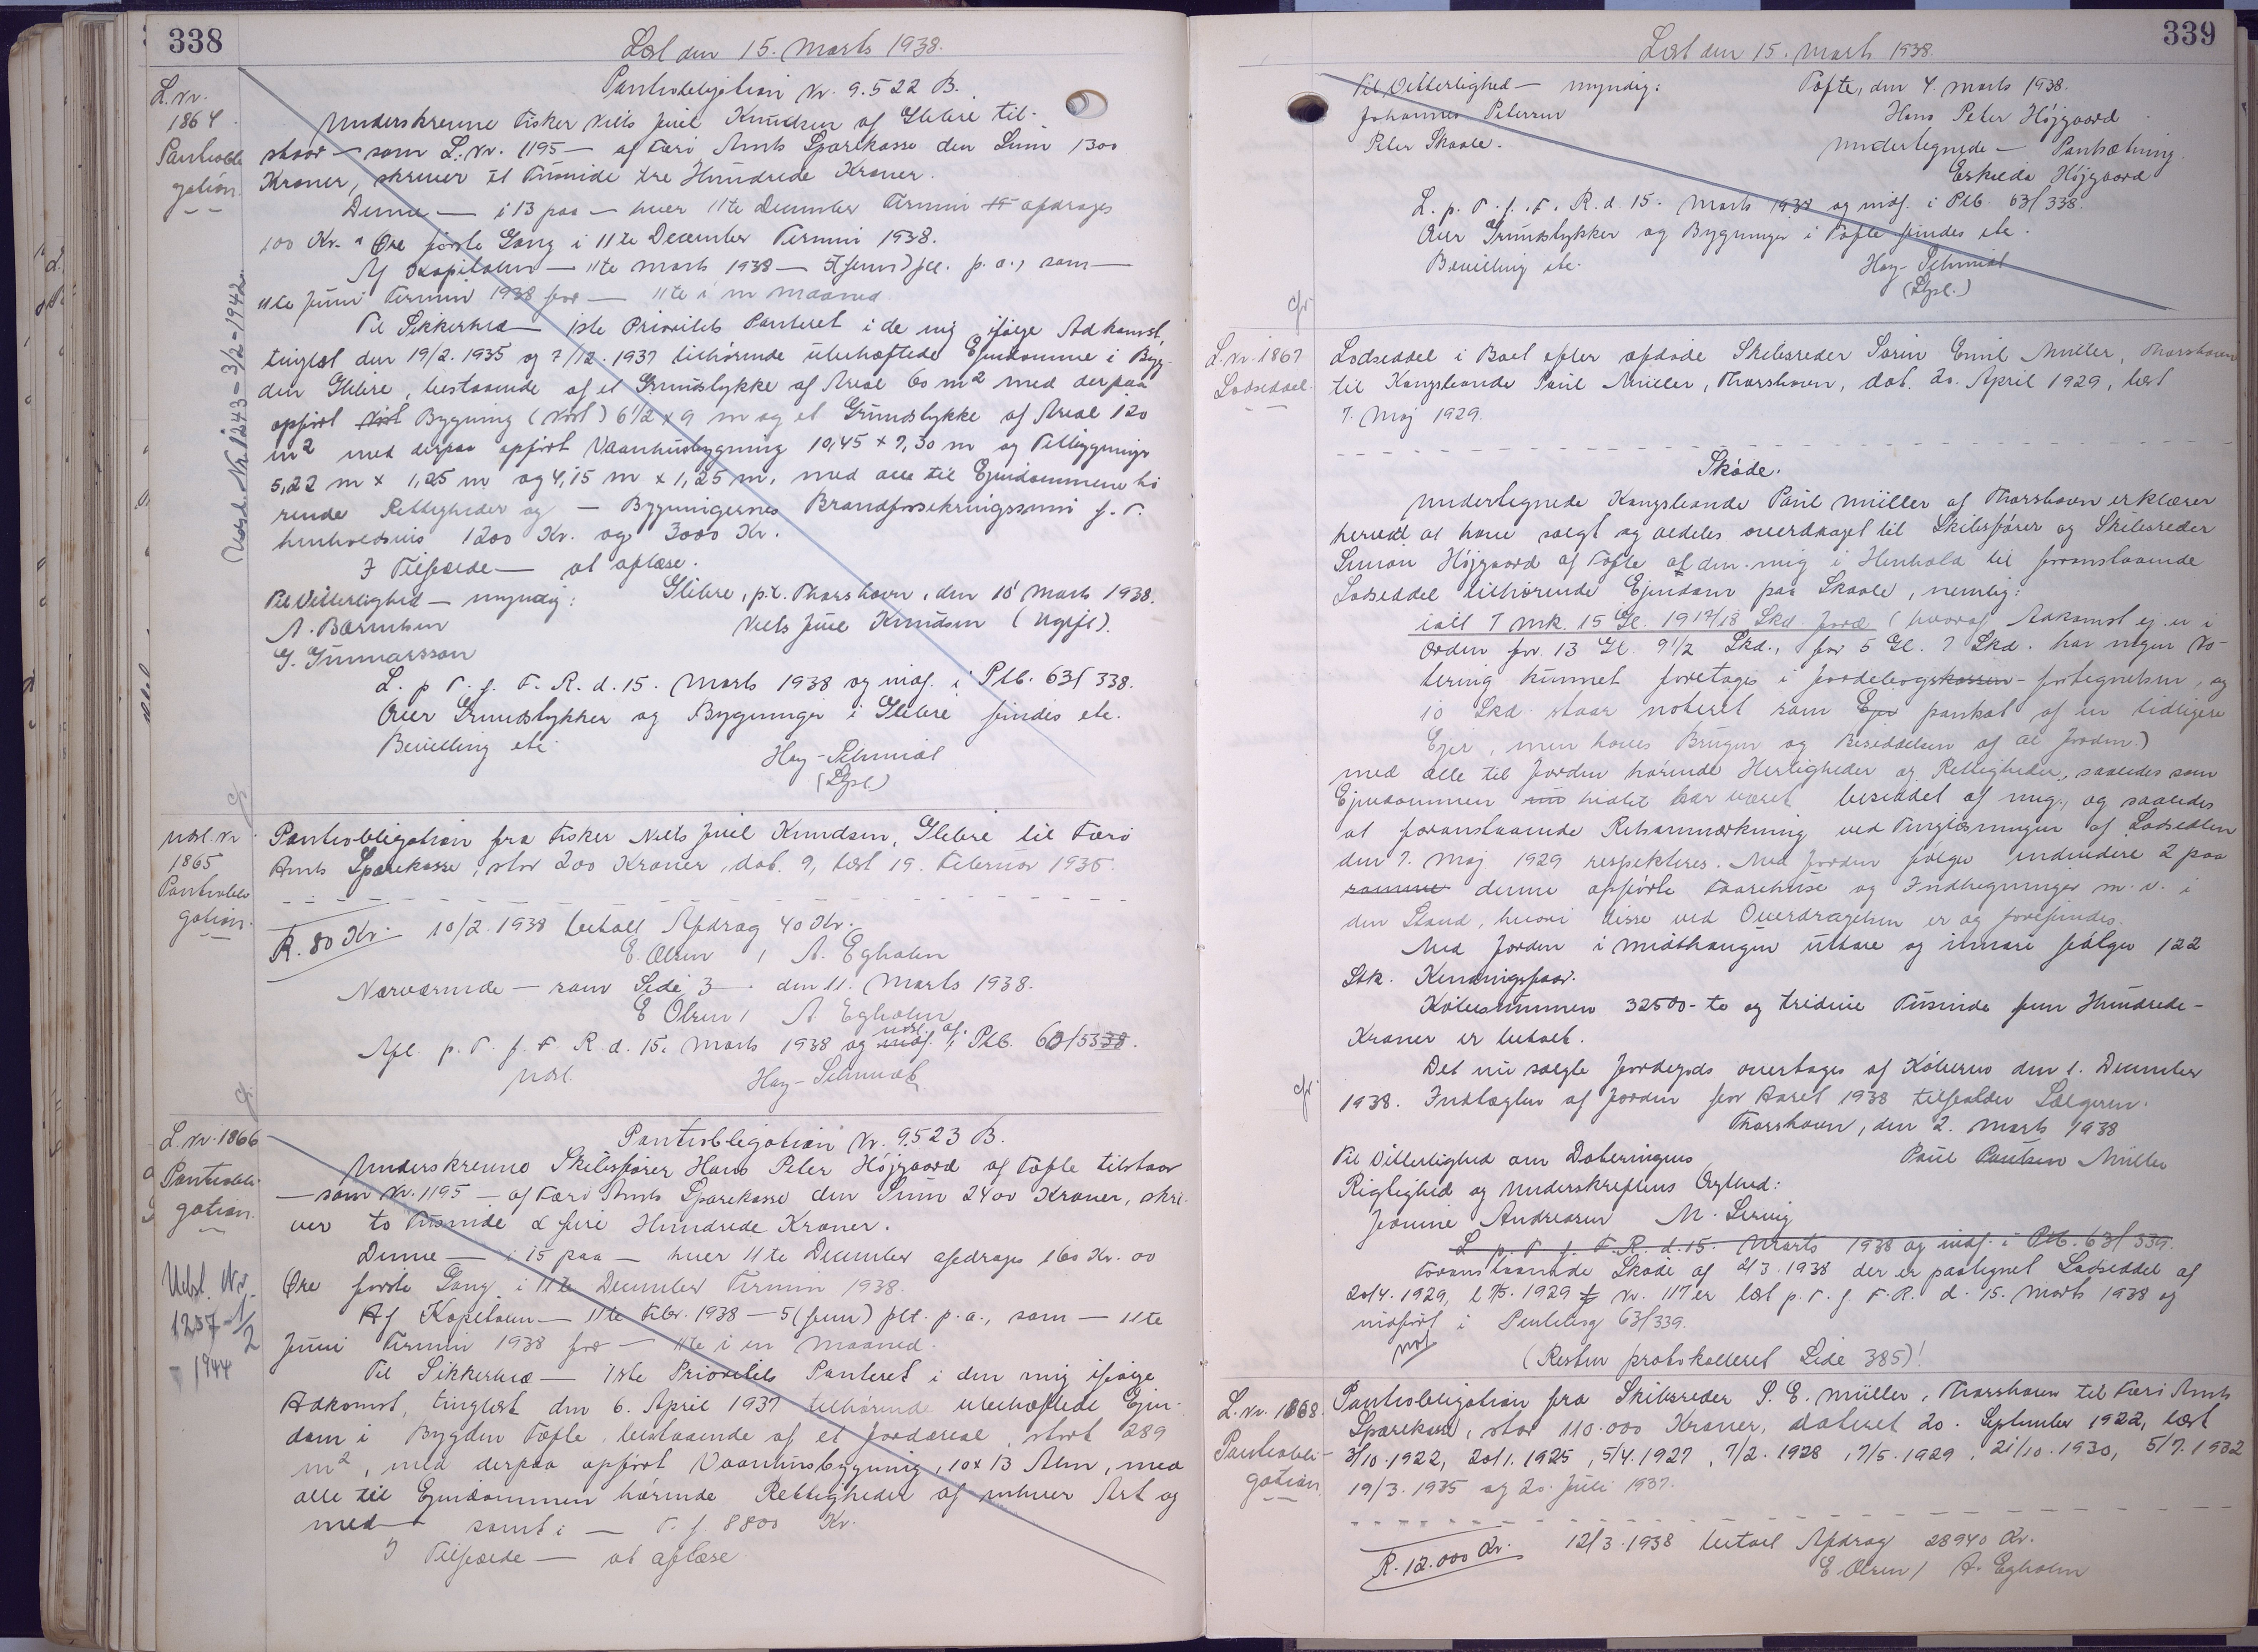 338
Læst den 15. Marts 1938.
L. Nr.
1864
Pantobli
gation.
Pantobligation Nr. 9.522 B.
Underskrevne Fisker Niels Juel Knudsen af Glibre til-
staar — som L. Nr. 1195 — af Færø Amts Sparekasse den Sum 1300
Kroner, skriver et Tusinde tre Hundrede Kroner.
Denne — i 13 paa — hver 11te December Termin afdrages
100 Kr. " Øre første Gang i 11te December Termin 1938.
Af Kapitalen — 11te Marts 1938 — 5 (fem) pct. p. a., som —
11te Juni Termin 1938 for — 11te i en Maaned.
Til Sikkerhed — 1ste Prioritets Panteret i de mig ifølge Adkomst,
tinglæst den 19/2. 1935 og 7/12. 1937 tilhørende ubehæftede Ejendomme i Byg-
den Glibre, bestaaende af et Grundstykke af Areal 60 m2 med derpaa
opført Nöst Bygning (Nöst) 6 1/2 x 9 m og et Grundstykke af Areal 120
m2 med derpaa opført Vaanhusbygning 10,45 x 7,30 m og Tilbygninger
5,22 m x 1,25 m og 4,15 m x 1,25 m, med alle til Ejendommene hö
rende Rettigheder og — Bygningernes Brandforsikringssum f. T.
henholdsvis 1200 Kr. og 3000 Kr.
I Tilfælde — at aflæse.
Til Vitterlighed — myndig: Glibre, p.t. Thorshavn, den 10' Marts 1938.
A. Bærentsen Niels Juel Knudsen (Ugift).
G. Gunnarsson
L. p. T. f. F. R. d. 15. Marts 1938 og indf. i Ptb. 63/338.
Over Grundstykker og Bygninger i Glibre findes etc.
Bevilling etc.
Hay-Schmidt
(Gpl.)
Udsl. Nr. 1243 - 3/2 - 1942.
Udsl. Nr
1865
Pantobli
gation.
Pantobligation fra Fisker Niels Juel Knudsen, Glibre til Færö
Amts Sparekasse, stor 200 Kroner, dat. 9, læst 19. Februar 1935.
R. 80 Kr. 10/2. 1938 betalt Afdrag 40 Kr.
E. Olsen / A. Egholm
Nærværende — som Side 3 — den 11. Marts 1938.
E Olsen / A. Egholm
Afl. p. T. f. F. R. d. 15. Marts 1938 og udsl. af Ptb.
Udsl. Hay-Schmidt
L. Nr. 1866
Pantobli-
gation.
Udsl. Nr.
1257 - 1/2
- 1944
Pantobligation Nr. 9.523 B.
Underskrevne Skibsfører Hans Peter Højgaard af Tofte tilstaar
— som Nr. 1195 — af Færö Amts Sparekasse den Sum 2400 Kroner, skri-
ver to Tusinde & fire Hundrede Kroner.
Denne — i 15 paa — hver 11te December afdrages 160 Kr. 00
Øre første Gang i 11te December Termin 1938.
Af Kapitalen — 11te Febr. 1938 — 5 (fem) pct. p. a., som — 11te
Juni Termin 1938 for — 11te i en Maaned.
Til Sikkerhed — 1ste Prioritets Panteret i den mig ifølge
Adkomst, tinglæst den 6. April 1937 tilhørende ubehæftede Ejen-
dom i Bygden Tofte, bestaaende af et Jordareal, stort 289
m2, med derpaa opført Vaanhusbygning, 10 x 13 Alen, med
alle til Ejendommen hørende Rettigheder af enhver Art og
med — samt i — T. f. 8800 Kr.
I Tilfælde — at aflæse.
339
Læst den 15. Marts 1938.
Til Vitterlighed — myndig: Tofte, den 4. Marts 1938.
Johannes Petersen Hans Peter Højgaard
Peter Skaale. Undertegnede — Pantsætning.
Højgaard
L. p. T. f. F. R. d. 15. Marts 1938 og indf. i Ptb. 63/338.
Over Grundstykker og Bygninger i Tofte findes etc.
Bevilling etc. Hay-Schmidt
(Gpl.)
L. Nr. 1867
Lodseddel.
Lodseddel i Boet efter afdøde Skibsreder Sørin Emil Müller, Thorshavn
til Kongsbonde Poul Müller, Thorshavn, dat. 20. April 1929, læst
7. Maj 1929.
Skøde.
Undertegnede Kongsbonde Poul Müller af Thorshavn erklærer
herved at have solgt og aldeles overdraget til Skibsfører og Skibsreder
Simon Højgaard af Tofte af den mig i Henhold til foranstaaende
Lodseddel tilhørende Ejendom paa Skaale, nemlig:
ialt 7 Mk. 15 Gl. 19 12/13 Skd. Jord (hvoraf Adkomst ej er i
Orden for 13 Gl. 9 1/2 Skd., for 5 Gl. 7 Skd. har ingen No-
tering kunnet foretages i Jordebogskassen-fortegnelsen, og
10 Skd. staar noteret som Ejer pantsat af en tidligere
Ejer, men haves Brugen og Besiddelsen af al Jorden.)
med alle til Jorden hørende Herligheder og Rettigheder, saaledes som
Ejendommen hidtil har været besiddet af mig, og saaledes
at foranstaaende Retsanmærkning ved Tinglæsningen af Lodsedlen
den 7. Maj 1929 respekteres. Med Jorden følger endvidere 2 paa
samme denne opførte Faarehuse og Indhegninger m. v. i
den Stand, hvori disse ved Overdragelsen er og forefindes.
Med Jorden i Midthaugen udtare og innari følger 122
Stk. Kenningsfaar.
Købesummen 32500 - to og tredive Tusinde fem Hundrede -
Kroner er betalt.
Det nu solgte Jordegods overtages af Køberen den 1. December
1938. Indtægten af Jorden for Aaret 1938 tilfalder Sælgeren.
Thorshavn, den 2. Marts 1938
Til Vitterlighed om Dateringens Poul Poulsen Müller
Rigtighed og Underskriftens Ægthed:
Andreasen M.
L. p. T. f. F. R. d. 15. Marts 1938 og indf. i Ptb. 63/339.
Foranstaaende Skøde af 2/3. 1938 der er paategnet Lodseddel af
20/4. 1929, l. 7/5. 1929 f Nr. 117 er læst p. T. f. F. R. d. 15. Marts 1938 og
indført i Pantebog 63/339.
(Resten protokolleret Side 385)!
L. Nr. 1868.
Pantobli-
gation.
Pantobligation fra Skibsreder S. E. Müller, Thorshavn til Færö Amts
Sparekasse, stor 110.000 Kroner, dateret 20. September 1922, læst
3/10. 1922, 20/1. 1925, 5/4. 1927, 7/2. 1928, 7/5. 1929, 21/10. 1930, 5/7. 1932
19/3. 1935 og 20. Juli 1937.
R. 12.000 Kr. 12/3. 1938 betalt Afdrag 28940 Kr.
E Olsen / A. Egholm